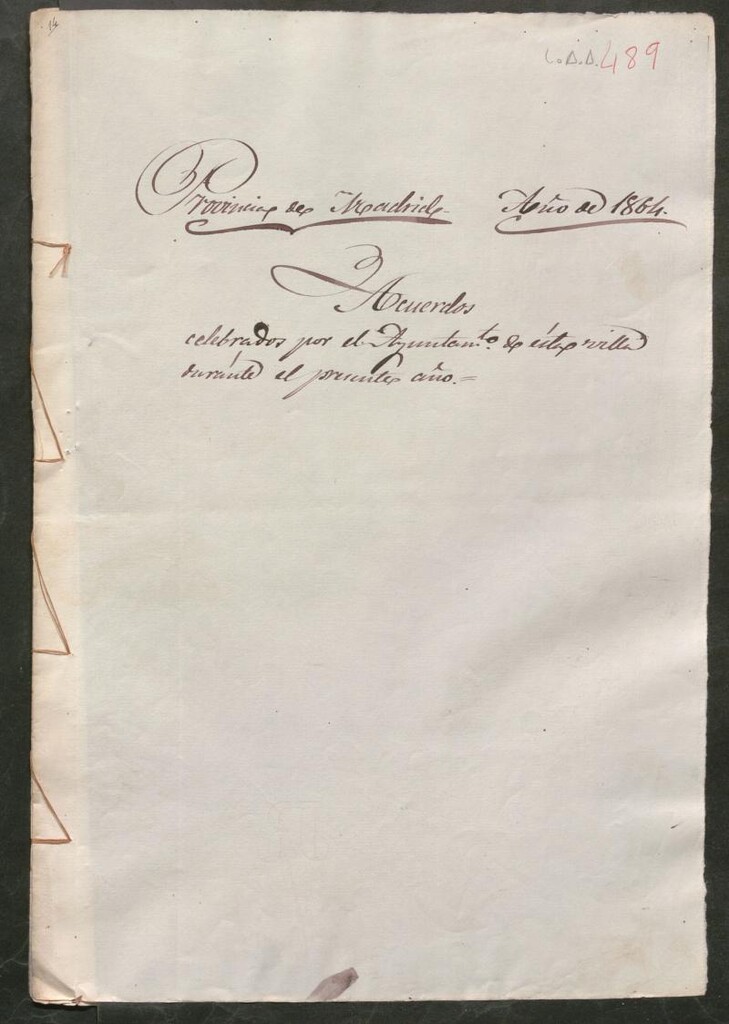 14
C.D.D. 489
Provincia de Madrid. Año de 1864.
Acuerdos
celebrados por el Ayuntamto. de ésta villa
duránte el presente año.=